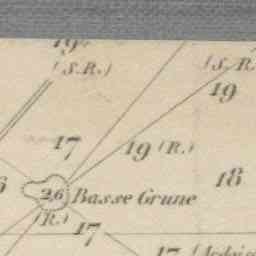 19
(S.R.)
(S.R.
19
17
19 (R.)
18
26 Basse Grune
(R.)
17
17